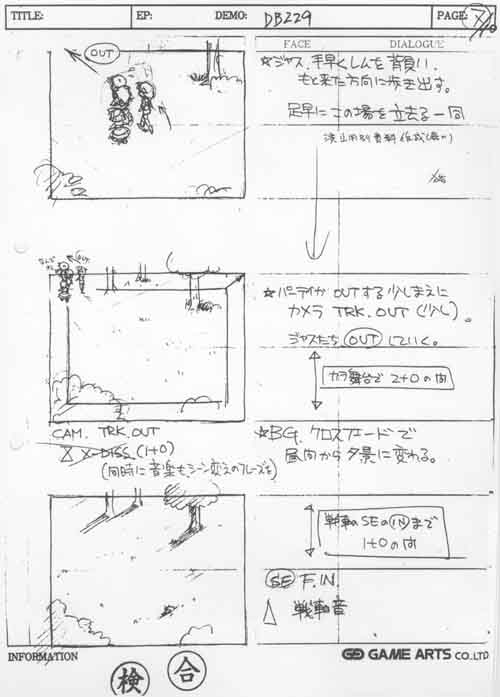 TITLE: EP: DEMO: DB229 PAGE: 7/10
FACE DIALOGUE
OUT
☆ジャス、手早くしんを背負い、
もと来た方向に歩き出す。
足早にこの場を立去る一同
OUT
☆パーティが OUTする少しまえに
カメラ TRK. OUT (少し)。
ジャスたち OUT していく。
カラ舞台で 2+0 の間
CAM. TRK. OUT
X-DISS. (1+0)
(同時に音楽も、シーン変えのフレーズを)
☆BG. クロスフェードで
昼間から夕景に変わる。
戦車のSEの IN まで
1+0 の間
SE F. IN.
戦車音
INFORMATION
GAME ARTS CO.,LTD.
検 合